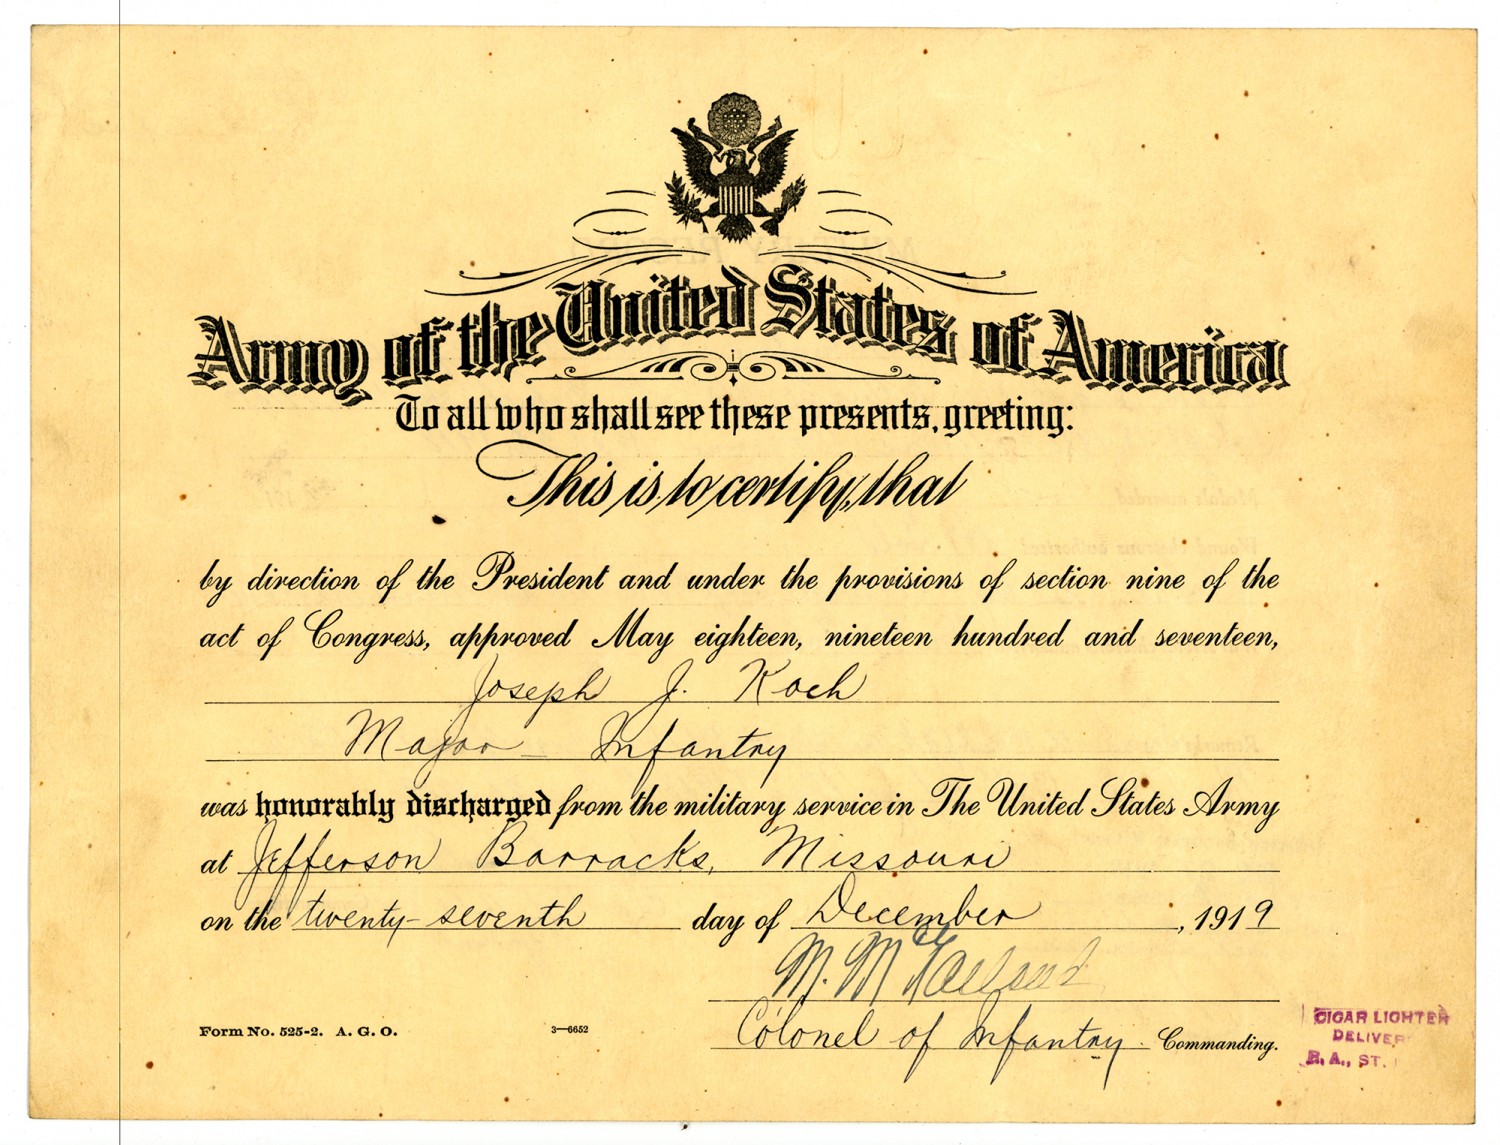 Army of the United States of America
To all who shall see these presents, greeting:
This is to certify, that
by direction of the President and under the provisions of section nine of the
act of Congress, approved May eighteen, nineteen hundred and seventeen,
Joseph J. Koch
Major - Infantry
was honorably discharged from the military service in The United States Army
at Jefferson Barracks, Missouri
on the twenty-seventh day of December, 1919
M. McFarland
Colonel of Infantry. Commanding.
Form No. 525-2. A. G. O. 3—6652
CIGAR LIGHTER
DELIVER
R. A., ST.